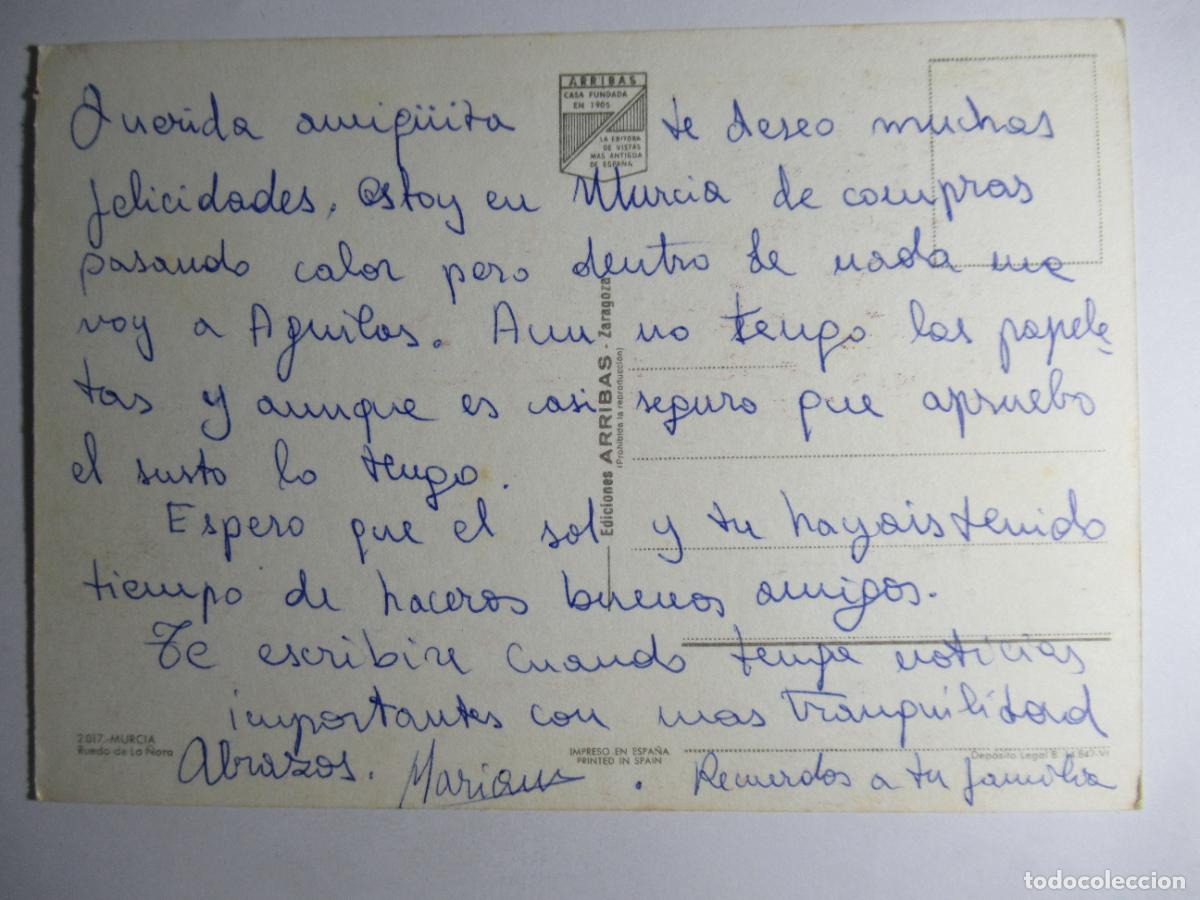 ARRIBAS
CASA FUNDADA
EN 1905
LA EDITORA
DE VISTAS
MAS ANTIGUA
DE ESPAÑA
Querida amigüita te deseo muchas
felicidades, estoy en Murcia de compras
pasando calor pero dentro de nada me
voy a Aguilas. Aun no tengo las papele-
tas y aunque es casi seguro que apruebo
el susto lo tengo.
Espero que el sol y tu hayais tenido
tiempo de haceros buenos amigos.
Te escribire cuando tenga noticias
importantes con mas tranquilidad
Abrazos. Marian . Recuerdos a tu familia
Ediciones ARRIBAS - Zaragoza
(Prohibida la reproducción)
2.017.-MURCIA
Rueda de La Ñora
IMPRESO EN ESPAÑA
PRINTED IN SPAIN
Depósito Legal B. 14.847-VI
todocoleccion